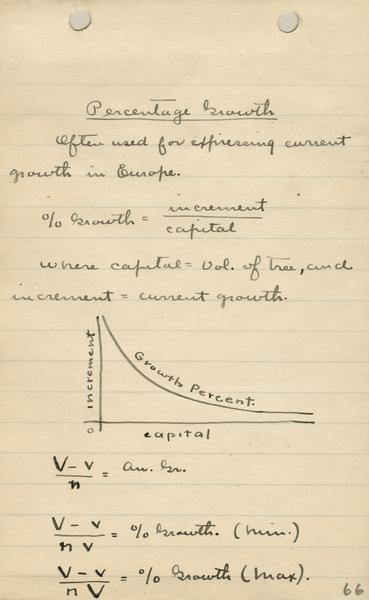 Percentage Growth
Often used for expressing current
growth in Europe.
% Growth = increment / capital
where capital = Vol. of tree, and
increment = current growth.
increment
Growth Percent.
0
capital
V - v / n = an. Gr.
V - v / n v = % Growth. (Min.)
V - v / n V = % Growth (Max).
66